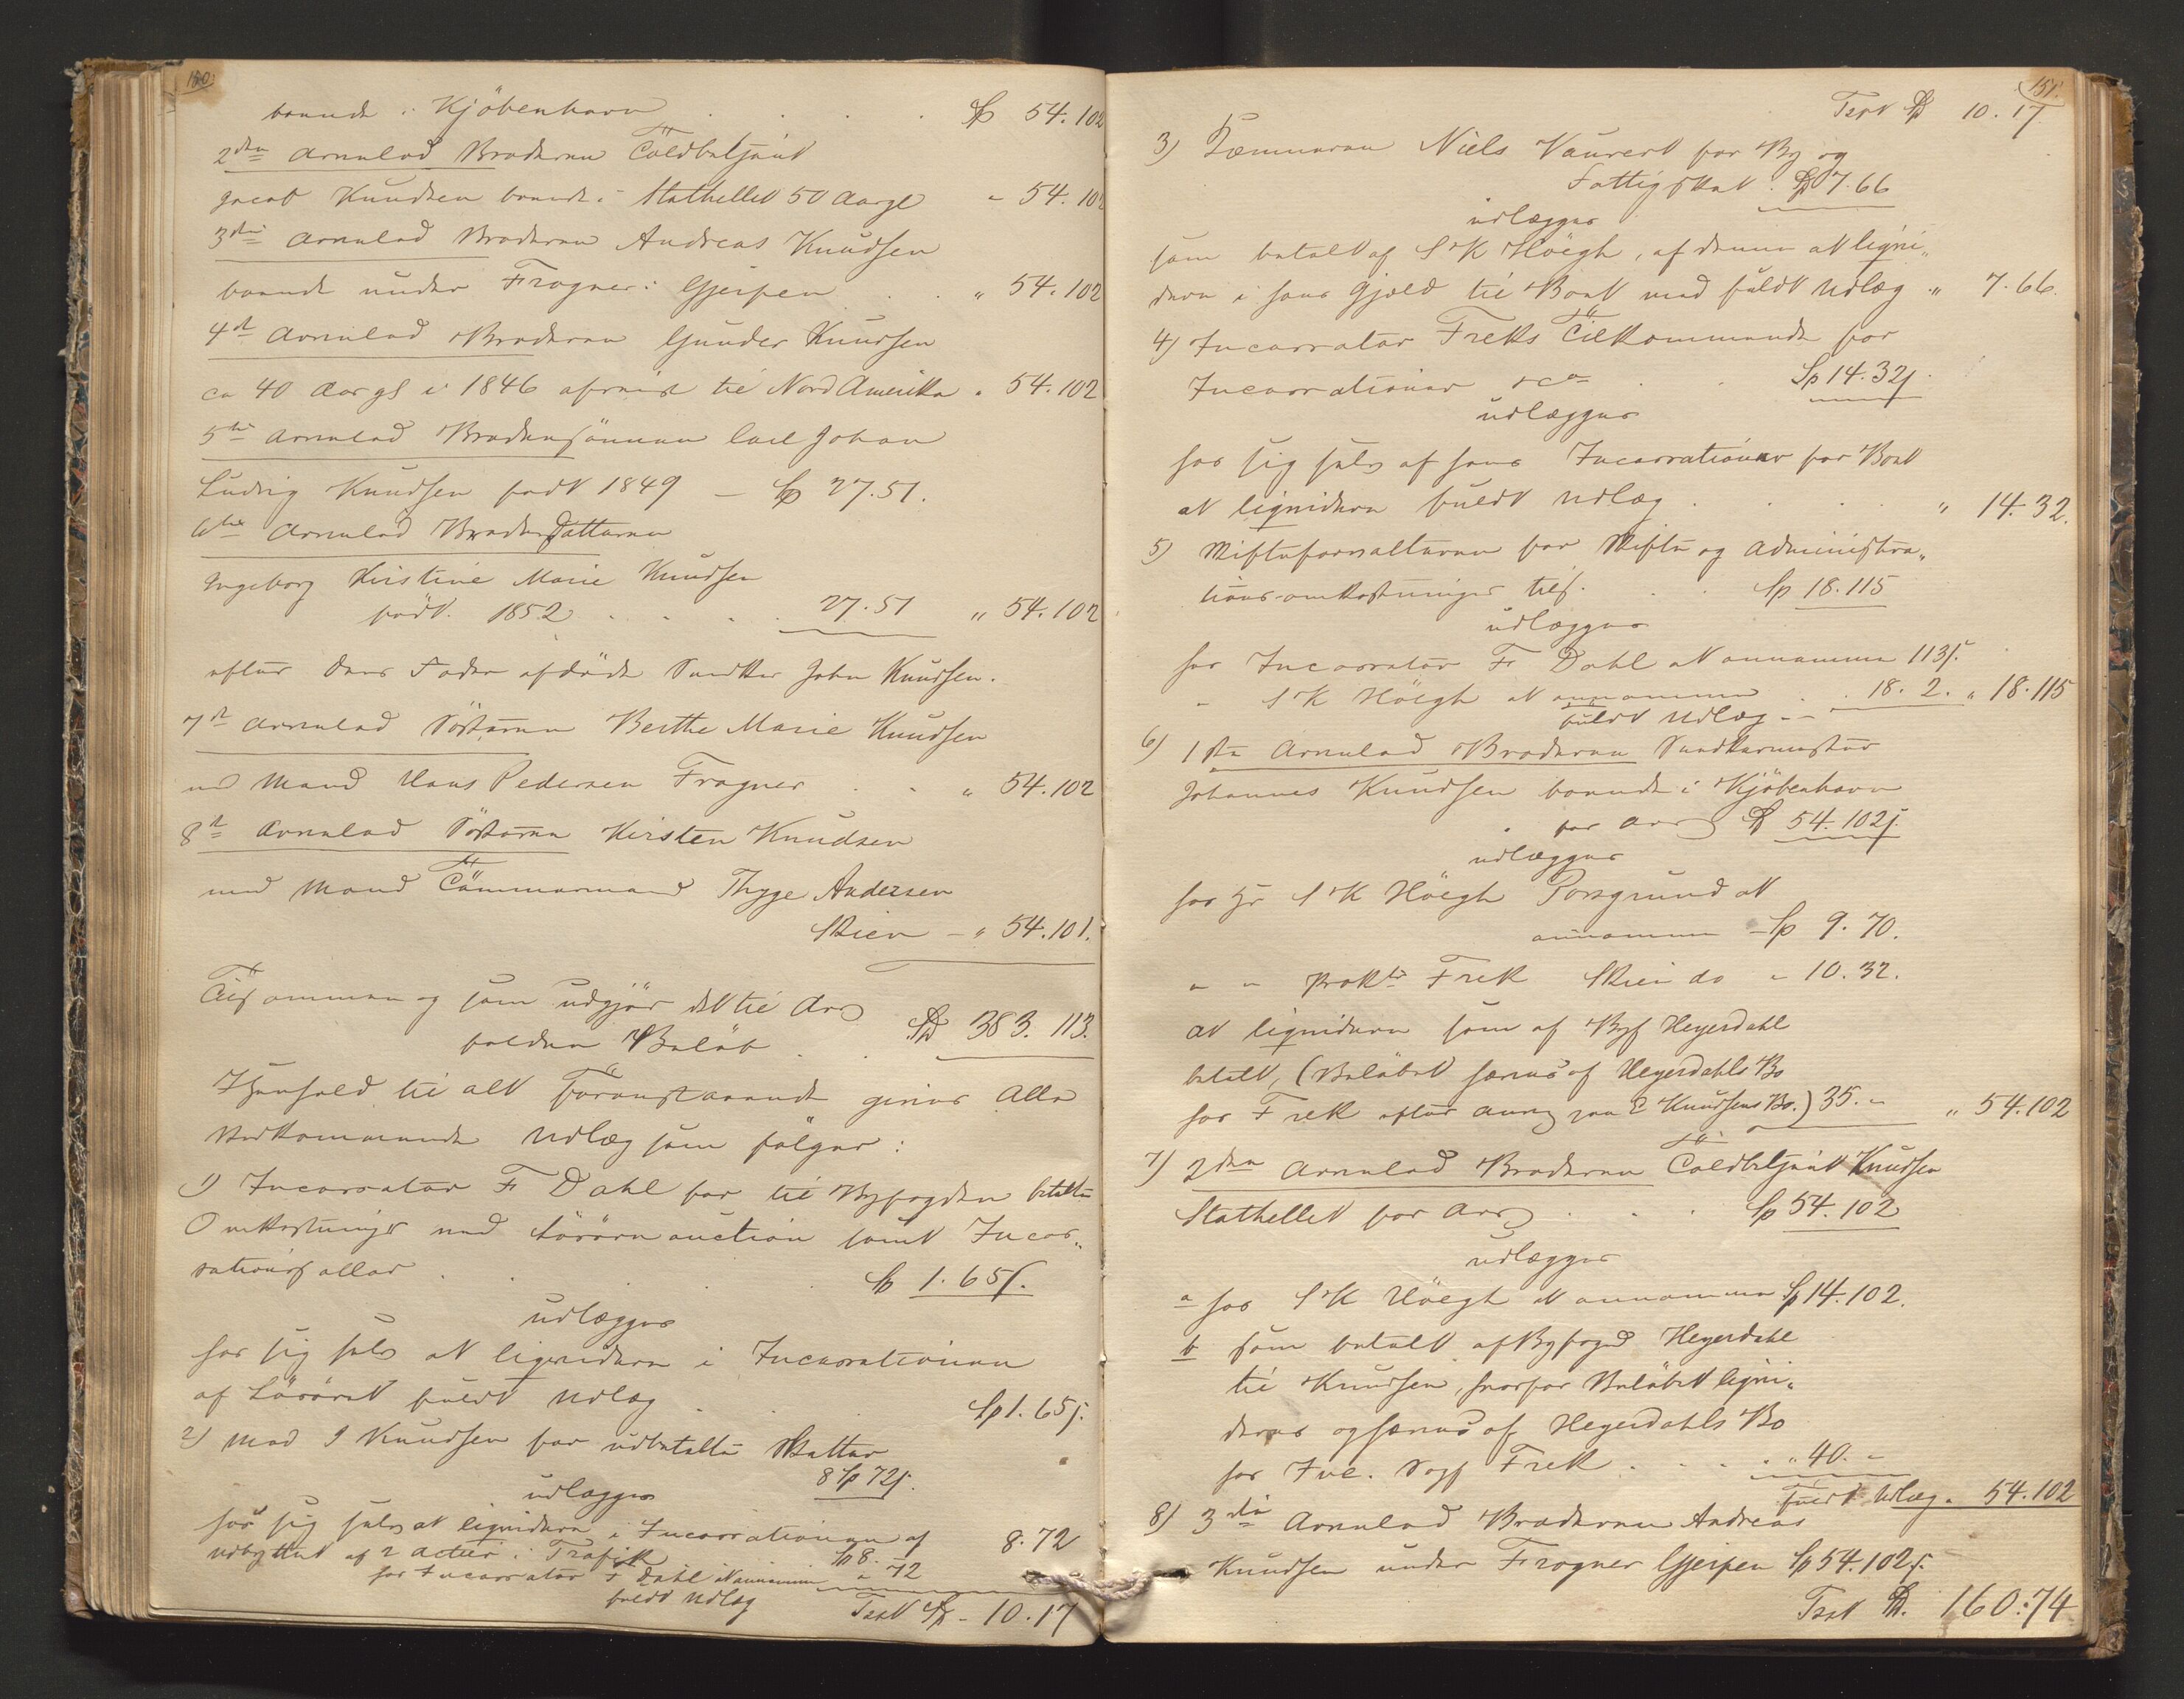 150.
boende i Kjöbenhavn . . . . Sp 54.102
2den Arvelod Broderen Toldbetjent
Jacob Knudsen boende i Stathellet 50 Aar gl " 54.102
3die Arvelod Broderen Andreas Knudsen
boende under Frogner i Gjerpen . . " 54.102
4de Arvelod Broderen Gunder Knudsen
ca 40 Aar gl i 1846 afreist til Nord Amerika " 54.102
5te Arvelod Brodersönnen Carl Johan
Ludvig Knudsen födt 1849 — Sp 27.51.
6te Arvelod Broderdatteren
Ingeborg Kirstine Marie Knudsen
födt 1852 . . . . 27.51 " 54.102
efter deres Fader afdöde Snedker John Knudsen.
7de Arvelod Sösteren Berthe Marie Knudsen
med Mand Hans Pedersen Frogner . . " 54.102
8de Arvelod Sösteren Kirsten Knudsen
med Mand Tömmermand Thyge Andersen
Skien — " 54.101.
Tilsammen og som udgjör det til Arv
faldne Belöb . . Sp 383.113.
I Henhold til alt Foranstaaende gives Alle
Vedkommende Udlæg som fölger:
1) Incassator F Dahl for til Byfogden betalte
Omkostninger med Lösöreauction samt Incas„
sationssallær . . . . Sp 1.65 s.
udlægges
hos sig selv at liqvidere i Incassationen
af Lösöret fuldt Udlæg . . . Sp 1.65 s.
2) Mad J Knudsen for udbetalte Skatter
8 Sp 72 s.
udlægges
hos sig selv at liqvidere i Incassationen af
Udbyttet af 2 Actier i Trafik Sp 8. — 8.72
hos Incassator F Dahl at annamme " 72
fuldt Udlæg Tspt Sp - 10.17
151.
Tspt Sp 10.17
3) Kæmneren Niels Vauvert for By og
Fattigskat . Sp 7.66
udlægges
som betalt af S K Höegh, af denne at liqvi„
dere i hans Gjæld til Boet med fuldt Udlæg " 7.66.
4) Incassator Freks Tilkommende for
Incassationer &ca . . Sp 14.32 s.
udlægges
hos sig selv af hans Incassationer for Boet
at liqvidere fuldt Udlæg . . . . " 14.32.
5) Skifteforvalteren for Skifte og Administra„
tions-omkostninger tils. . . Sp 18.115
udlægges
hos Incassator Fr Dahl at annamme 113 s.
" S K Höegh at annamme . . 18. 2. " 18.115
fuldt Udlæg
6) 1ste Arvelod Broderen Snedkermester
Johannes Knudsen boende i Kjöbenhavn
for Arv Sp 54.102 s.
udlægges
hos Hr S K Höegh Porsgrund at
annamme - Sp 9.70.
" " Prokr Frek Skien do " 10.32.
at liqvidere som af Byf Heyerdahl
betalt, (Belöbet hæves af Heyerdahls Bo
hos Frek efter Anvg paa E Knudsens Bo.) 35. " " 54.102
7) 2den Arvelod Broderen Toldbetjent Knudsen
Stathellet for Arv . . . Sp 54.102
udlægges
a hos S K Höegh at annamme Sp 14.102.
b som betalt af Byfoged Heyerdahl
til Knudsen, hvorfor Belöbet liqvi„
deres og hæves af Heyerdahls Bo
hos Inc. Sagf Frek . . . . " 40. "
fuldt Udlæg " 54.102
8) 3die Arvelod Broderen Andreas
Knudsen under Frogner Gjerpen Sp 54.102 s.
Tspt Sp. 160.74